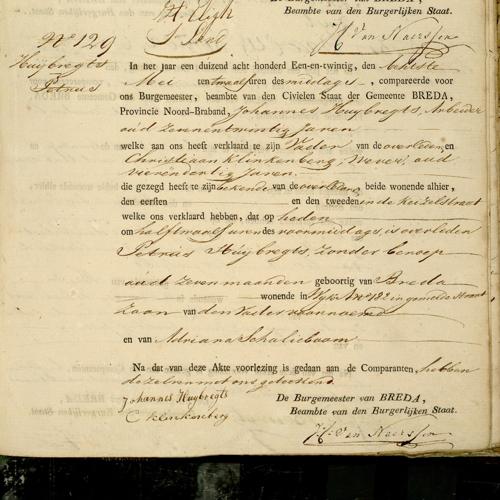 De Burgemeester van BREDA,
Beambte van den Burgerlijken Staat.
H. Van Naerssen
N° 129
Huybregts
Petrus
In het jaar een duizend acht honderd Een-en-twintig, den Achtste
Mei ten twaalf uren des middags, compareerde voor
ons Burgemeester, beambte van den Civielen Staat der Gemeente BREDA,
Provincie Noord-Braband, Johannes Huybregts, Arbeider
oud zevenentwintig Jaren
welke aan ons heeft verklaard te zijn Vader van de overleden, en
Christiaan Klinkenberg, Wever, oud
vierendertig Jaren
die gezegd heeft te zijn bekende van de overledene, beide wonende alhier,
den eersten en den tweeden in de Keizelstraat
welke ons verklaard hebben, dat op heden
om half twaalf uren des voormiddags, is overleden
Petrus Huybregts, zonder beroep
oud zeven maanden geboortig van Breda
wonende in Wyk A N° 122 in gemelde Straat
Zoon van den Vader voornoemd
en van Adriana Schalieboom
Na dat van deze Akte voorlezing is gedaan aan de Comparanten, hebben
dezelven met ons geteekend.
Johannes Huybregts
C klinkenberg
De Burgemeester van BREDA,
Beambte van den Burgerlijken Staat.
H. Van Naerssen